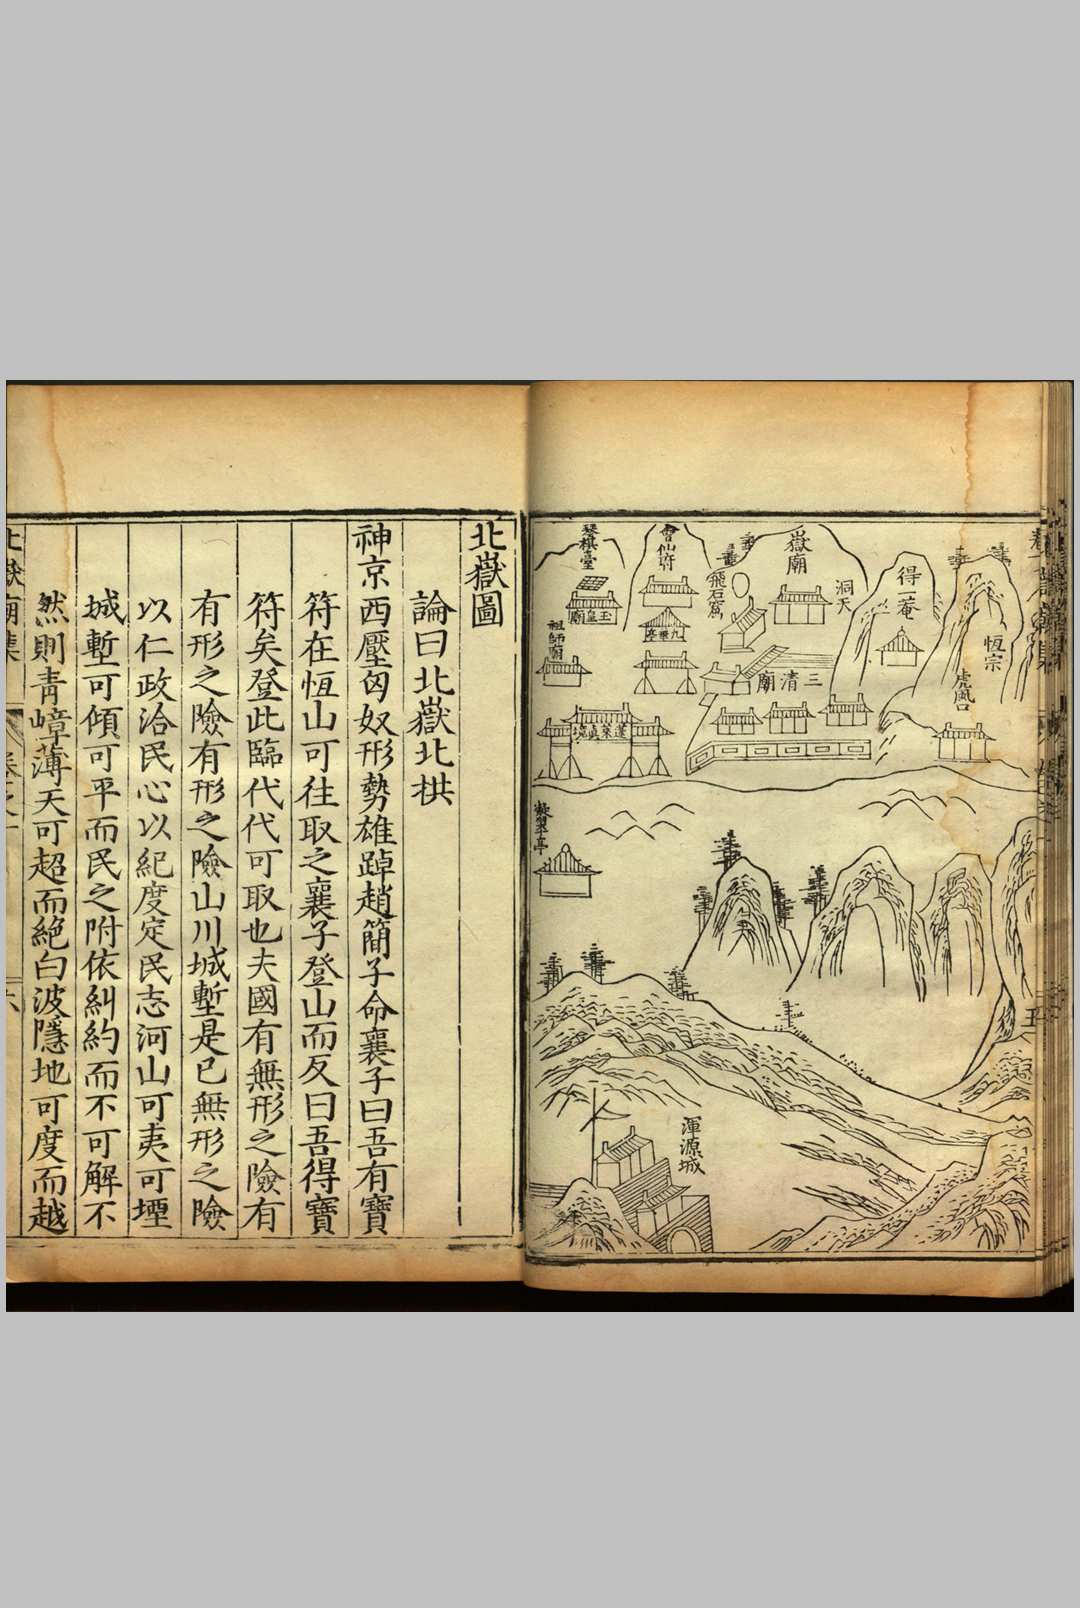 嶽廟
洞天
得一菴
恆宗
虎風口
會仙府
飛石窟
琴棋臺
玉皇廟
九天宮
祖師廟
三清廟
蓬萊真境
凝翠亭
渾源城
五
北嶽圖
論曰北嶽北拱
神京西壓匈奴形勢雄踔趙簡子命襄子曰吾有寶
符在恆山可往取之襄子登山而反曰吾得寶
符矣登此臨代代可取也夫國有無形之險有
有形之險有形之險山川城塹是已無形之險
以仁政洽民心以紀度定民志河山可夷可堙
城塹可傾可平而民之附依糾約而不可解不
然則青嶂薄天可超而絕白波隱地可度而越
北嶽廟集
卷之一
六